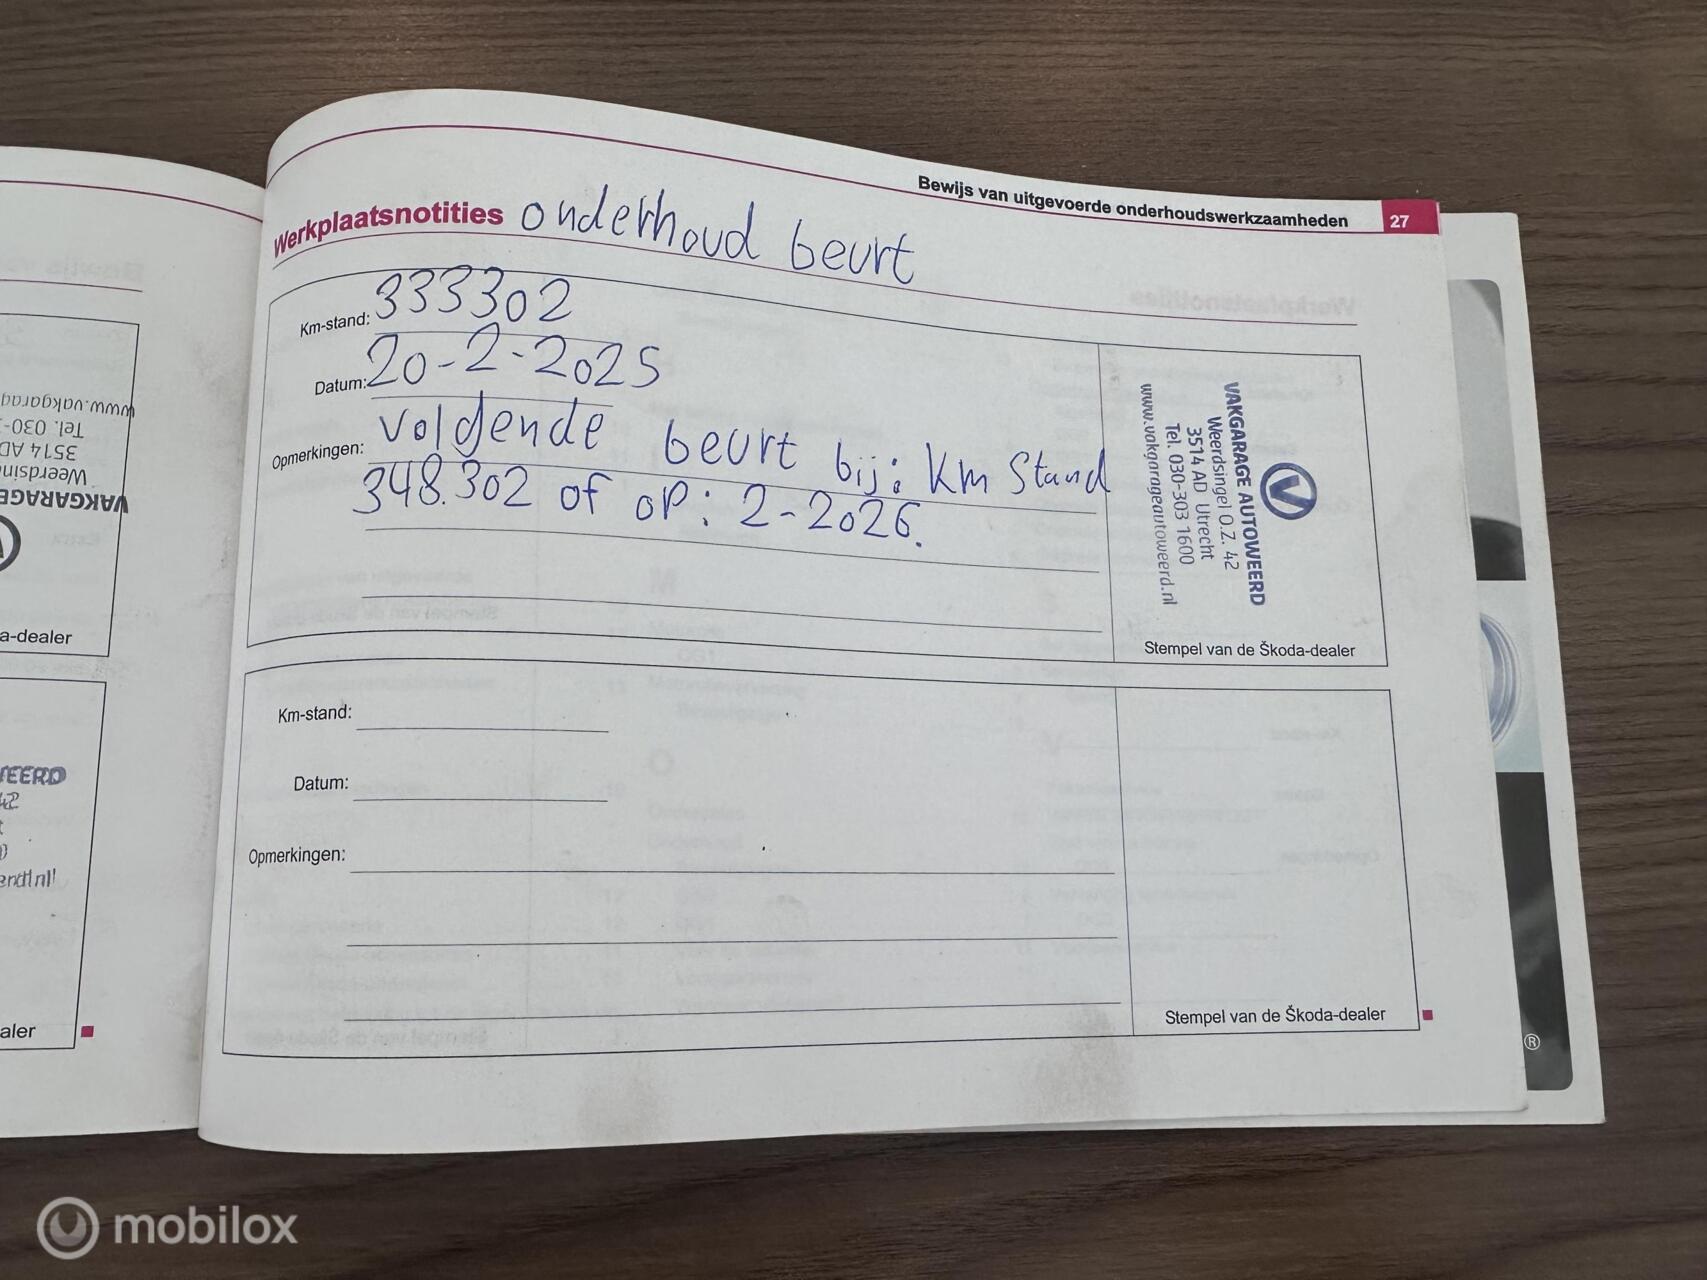 www.vakgarag
Tel. 030-
3514 AD
Weerdsin
VAKGARAGE
a-dealer
WEERD
42
aler
Bewijs van uitgevoerde onderhoudswerkzaamheden 27
Werkplaatsnotities onderhoud beurt
Km-stand: 333302
Datum: 20-2-2025
Opmerkingen: volgende beurt bij: Km Stand
348.302 of op: 2-2026.
VAKGARAGE AUTOWEERD
Weerdsingel O.Z. 42
3514 AD Utrecht
Tel. 030-303 1600
www.vakgarageautoweerd.nl
Stempel van de Škoda-dealer
Km-stand:
Datum:
Opmerkingen:
Stempel van de Škoda-dealer
®
mobilox